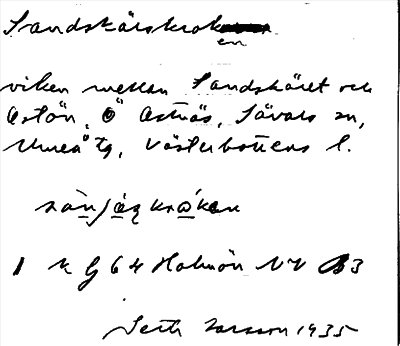 Sandskärskroken
viken mellan Sandskäret och
Ostön, Ö Ostnäs, Sävars sn,
Umeå tg, Västerbottens l.
1 K G 64 Holmön NV B3
Seth Larsson 1935